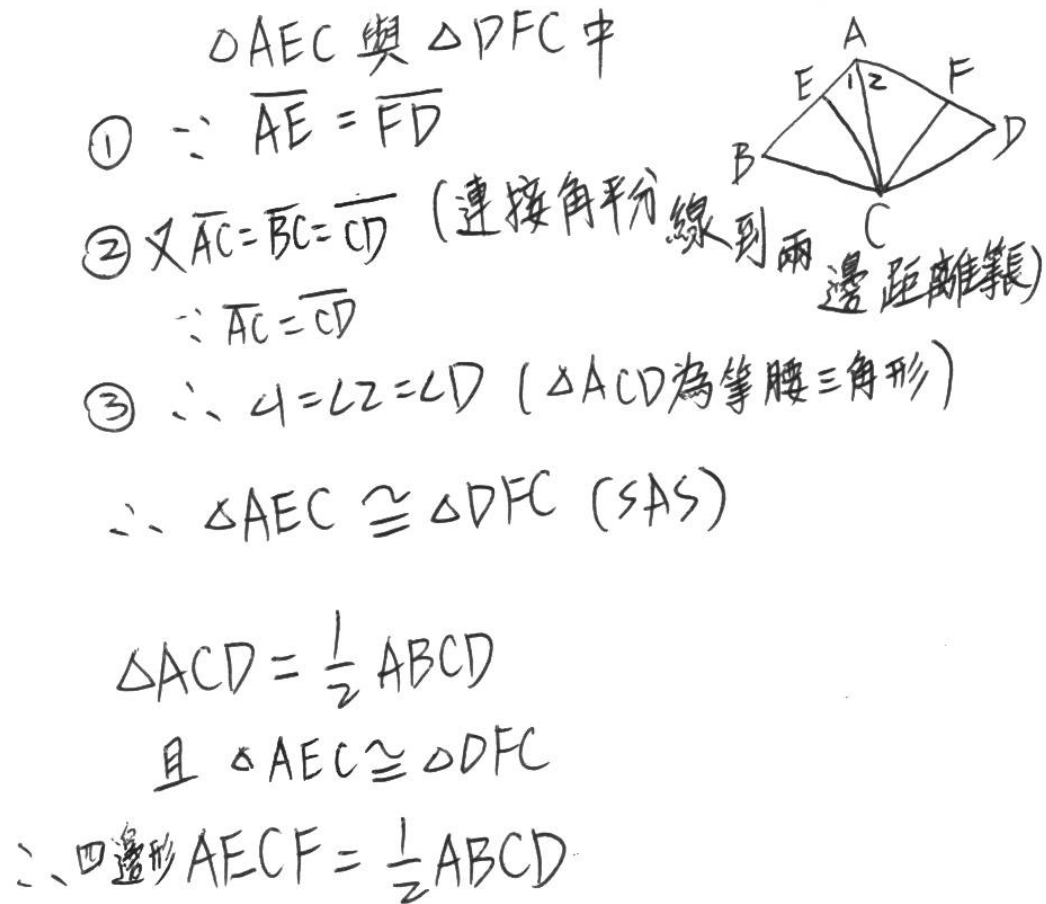 △AEC 與 △DFC 中
① ∵ AE = FD
② 又 AC = BC = CD (連接角平分線到兩邊距離等長)
∵ AC = CD
③ ∴ ∠1 = ∠2 = ∠D (△ACD為等腰三角形)
∴ △AEC ≅ △DFC (SAS)
△ACD = 1/2 ABCD
且 △AEC ≅ △DFC
∴ 四邊形 AECF = 1/2 ABCD
A
E
1
2
F
B
D
C